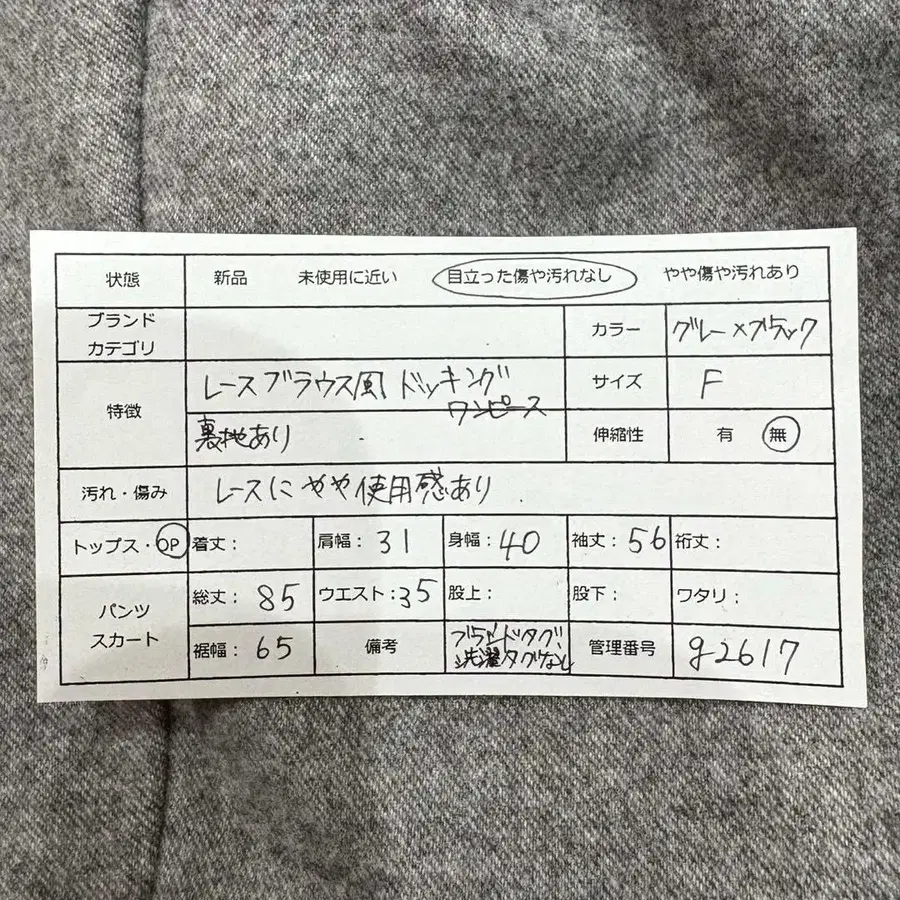 状態 新品 未使用に近い 目立った傷や汚れなし やや傷や汚れあり
ブランド
カテゴリ
カラー グレー×ブラック
特徴 レースブラウス風ドッキング
ワンピース
サイズ F
裏地あり
伸縮性 有 無
汚れ・傷み レースにやや使用感あり
トップス・OP 着丈: 肩幅: 31 身幅: 40 袖丈: 56 裄丈:
パンツ
スカート
総丈: 85 ウエスト: 35 股上: 股下: ワタリ:
裾幅: 65 備考 ブランドタグ、
洗濯タグなし
管理番号 g2617